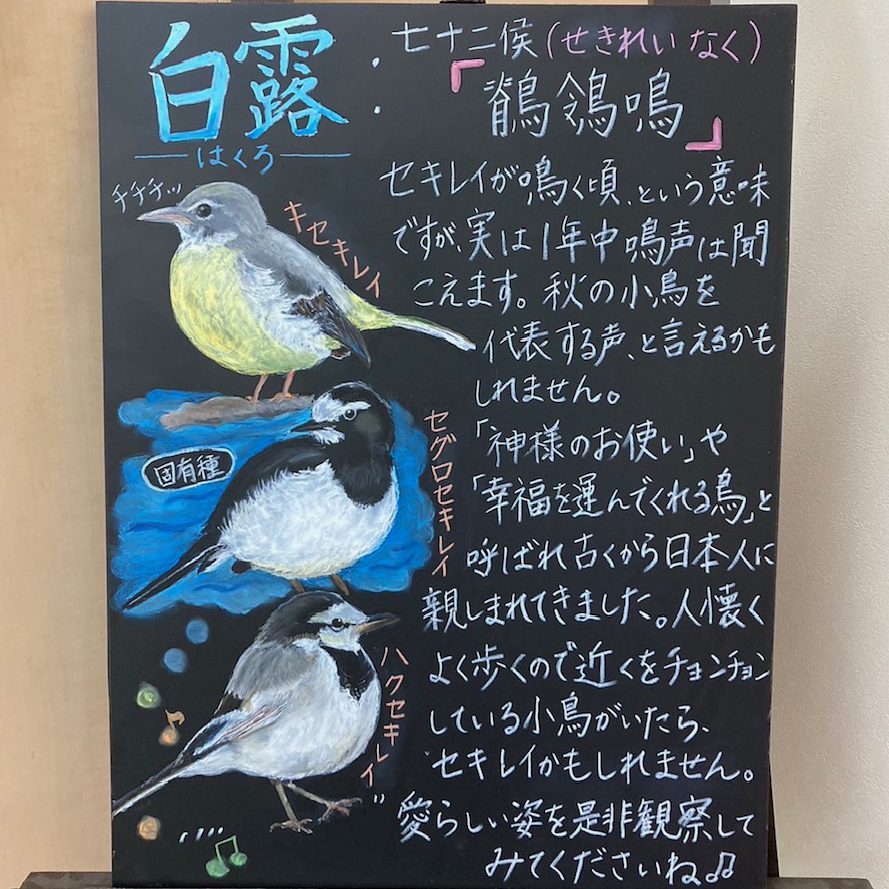 白露
はくろ
：
七十二侯（せきれい なく）
『鶺鴒鳴』
セキレイが鳴く頃、という意味
ですが、実は1年中鳴声は聞
こえます。秋の小鳥を
代表する声、と言えるかも
しれません。
「神様のお使い」や
「幸福を運んでくれる鳥」と
呼ばれ古くから日本人に
親しまれてきました。人懐く
よく歩くので近くをチョンチョン
している小鳥がいたら、
セキレイかもしれません。
愛らしい姿を是非観察して
みてくださいね♫
チチチッ
キセキレイ
固有種
セグロセキレイ
ハクセキレイ